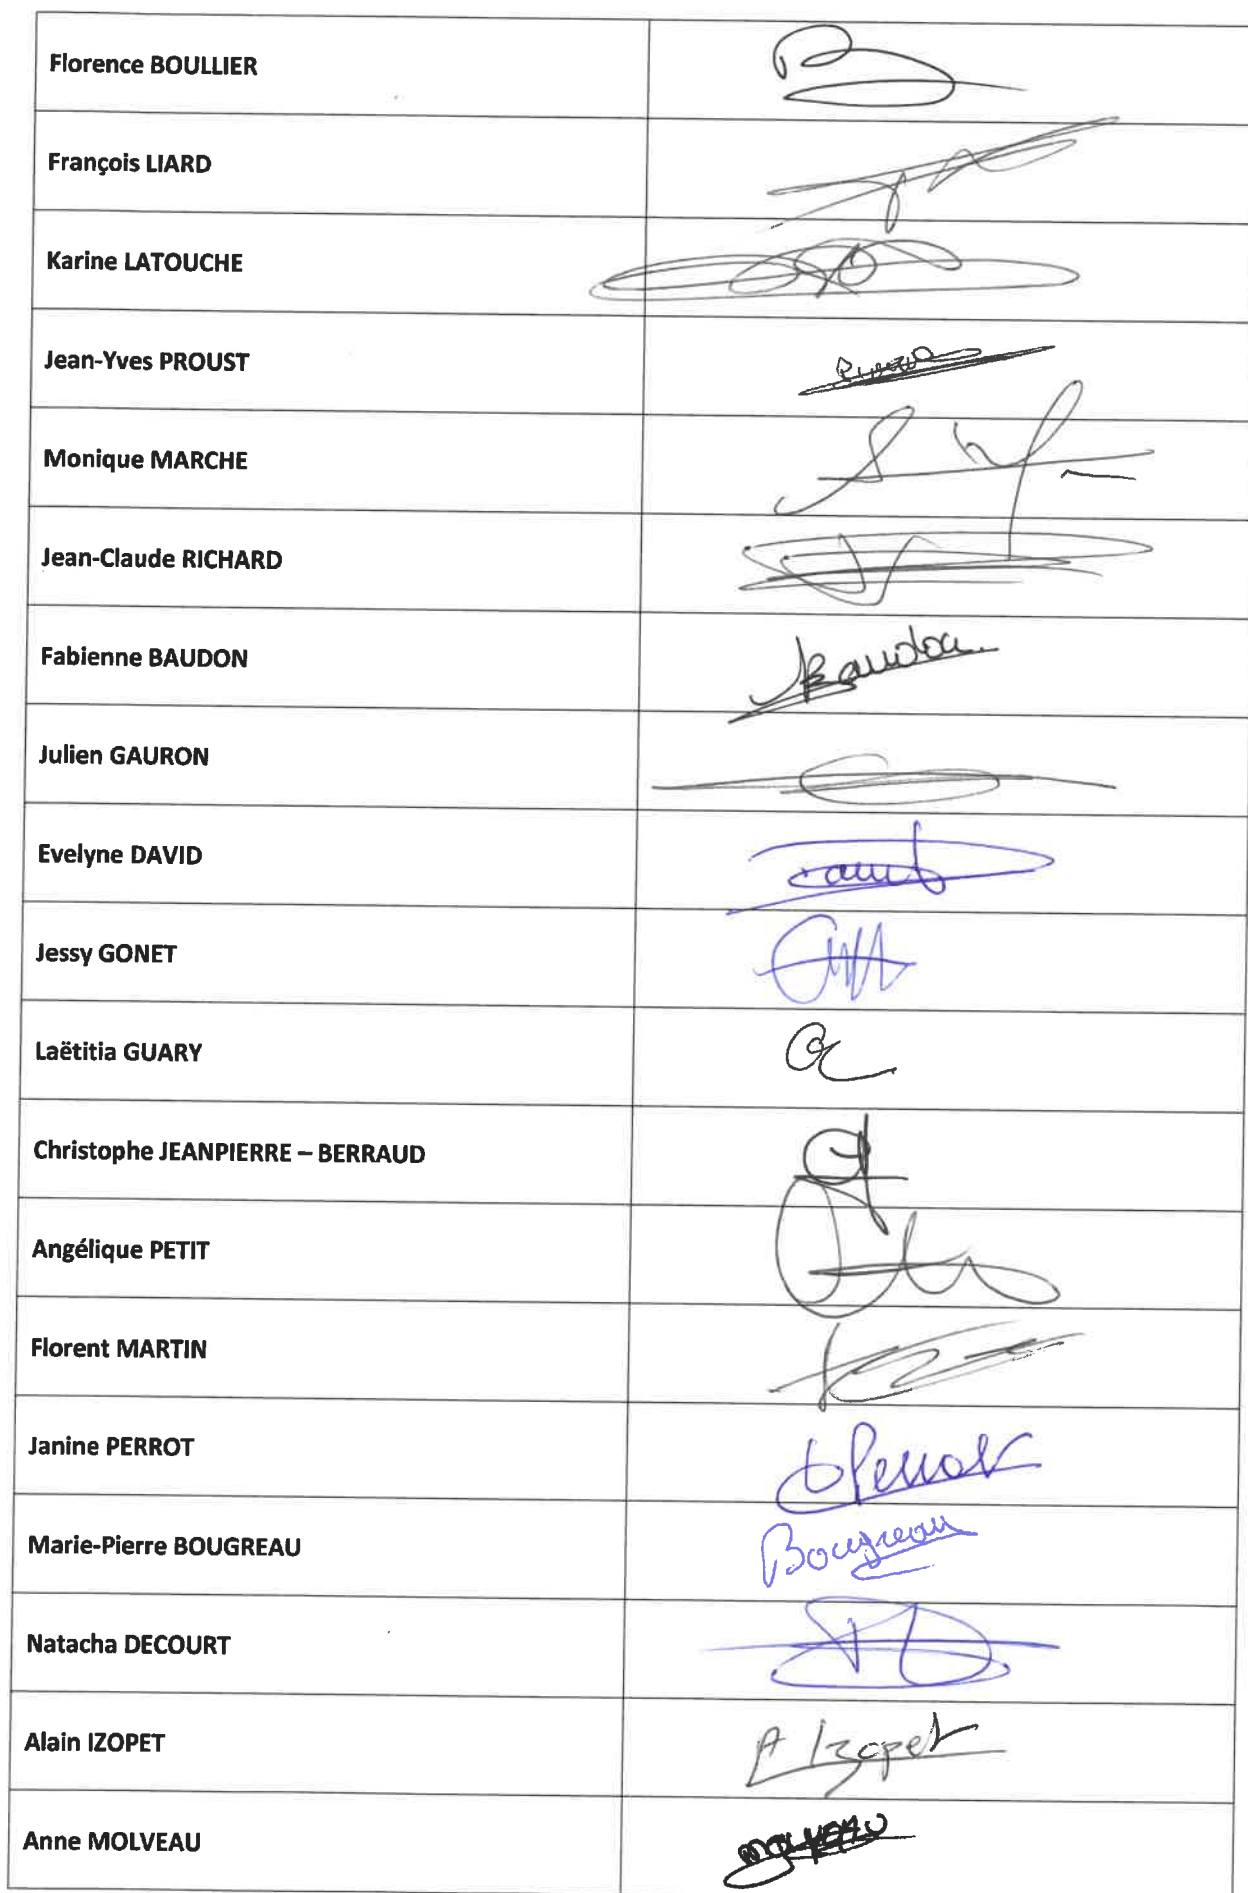 Florence BOULLIER
François LIARD
Karine LATOUCHE
Jean-Yves PROUST
Monique MARCHE
Jean-Claude RICHARD
Fabienne BAUDON
Baudon
Julien GAURON
Evelyne DAVID
Jessy GONET
Laëtitia GUARY
Christophe JEANPIERRE – BERRAUD
Angélique PETIT
Florent MARTIN
Janine PERROT
Perrot
Marie-Pierre BOUGREAU
Bougreau
Natacha DECOURT
Alain IZOPET
A Izopet
Anne MOLVEAU
MOLVEAU